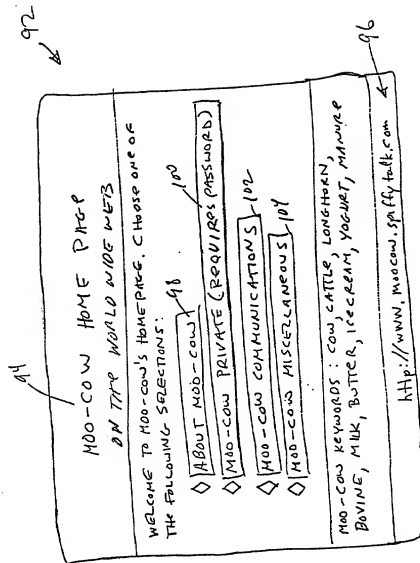 92
94
MOO-COW HOME PAGE
ON THE WORLD WIDE WEB
WELCOME TO MOO-COW'S HOMEPAGE. CHOOSE ONE OF
THE FOLLOWING SELECTIONS:
98
ABOUT MOO-COW
100
MOO-COW PRIVATE (REQUIRES PASSWORD)
MOO-COW COMMUNICATIONS 102
MOO-COW MISCELLANEOUS 104
MOO-COW KEYWORDS: COW, CATTLE, LONGHORN,
BOVINE, MILK, BUTTER, ICE CREAM, YOGURT, MANURE
http://www.moocow.spiffytalk.com
96